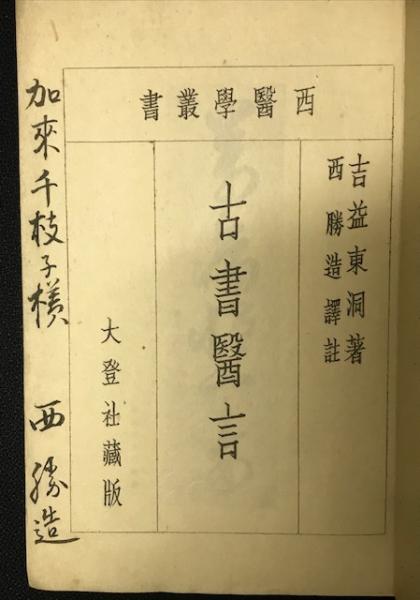 西醫學叢書
吉益東洞著
西勝造譯註
古書醫言
大登社藏版
加來千枝子様
西勝造